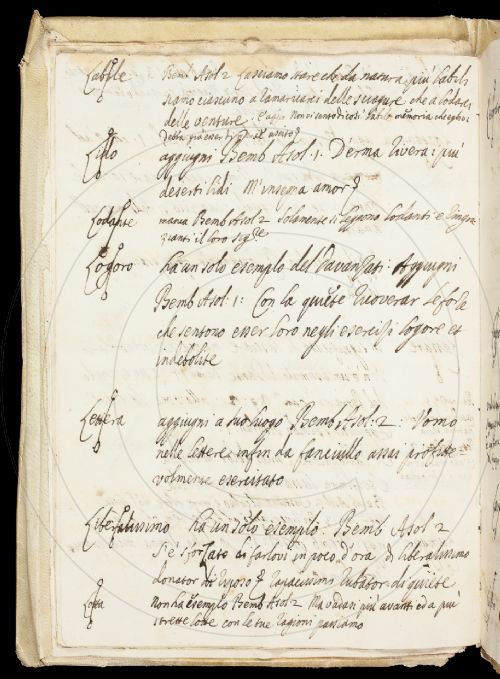 Labile Bemb Asol 2 Lasciamo stare che da natura più labili
siamo ciascuno a ramaricarci delle sciagure che a lodarci
delle venture
Lido aggiugni Bemb Asol: 1. D'erma riviera: più
deserti lidi M'insegna amor
Lodante manca Bemb Asol 2 Solamente si leggono lodanti e ringra
zianti il loro sig.re
Logoro ha un solo esempio del Davanzati. Aggiugni
Bemb Asol: 1: Con la quiete ricoverar le forze
che sentono esser loro negli esercizj logore et
indebolite
Lettera aggiugni a suo luogo Bemb Asol: 2: Uomo
nelle lettere infin da fanciullo assai profitte
volmente esercitato
Liberalissimo ha un solo esempio. Bemb Asol 2
si è sforzato di farlovi in poco d'ora di liberalissimo
donator di riposo rubator di quiete
Lotta Non ha esempio Bemb Asol 2 Ma vadasi più avanti ed a più
strette lotte con le tue ragioni passiamo